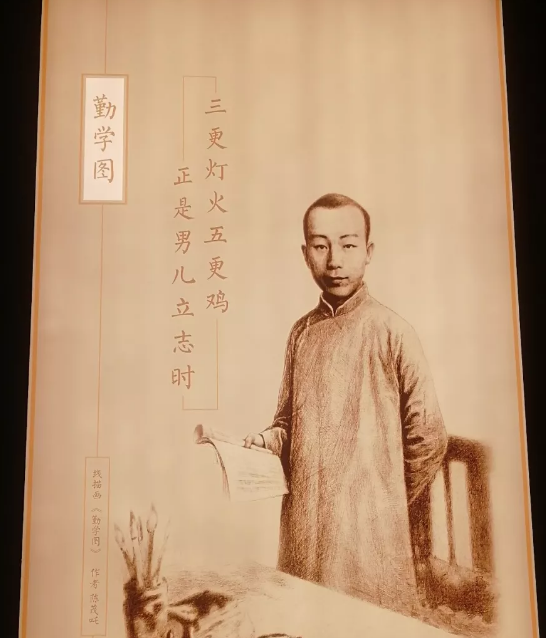 勤学图
三更灯火五更鸡
正是男儿立志时
线描画《勤学图》 作者 陈茂